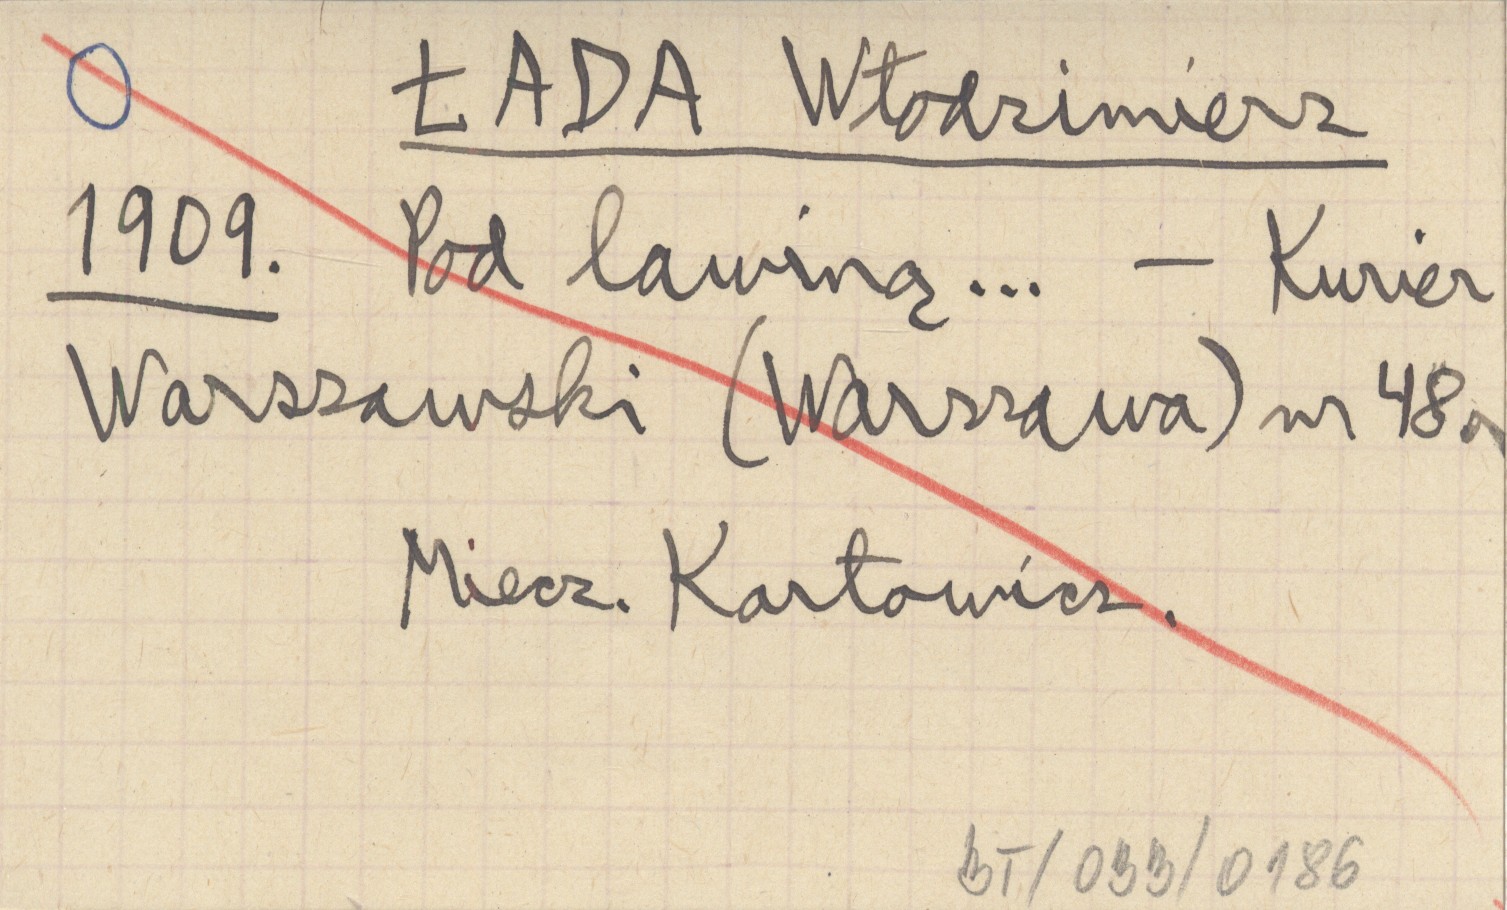 ŁADA Włodzimierz
1909. Pod lawiną... — Kurier
Warszawski (Warszawa) nr 48.
Miecz. Karłowicz.
BT/033/0186